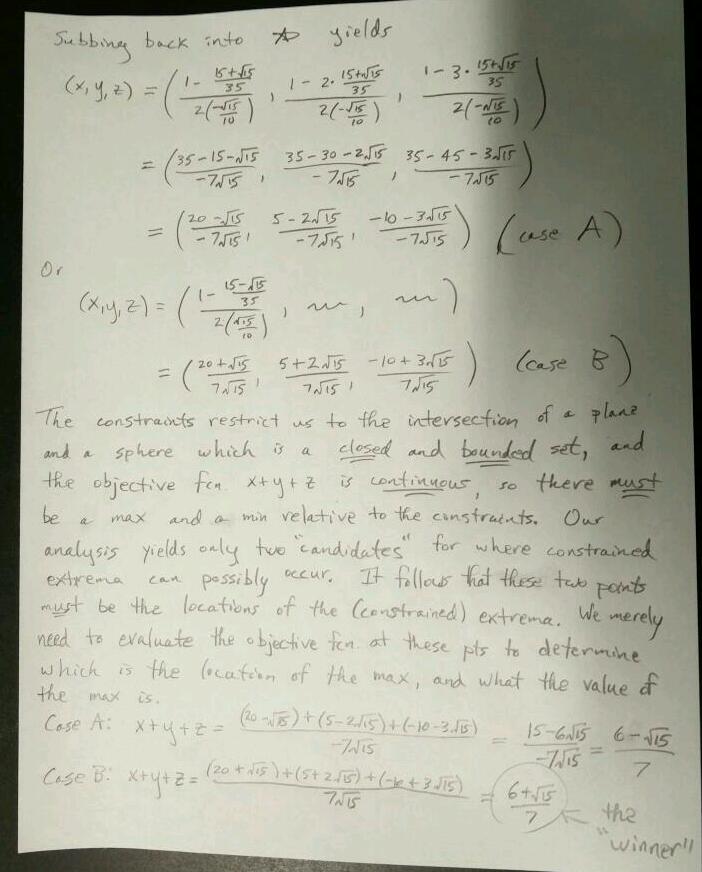 Subbing back into ☆ yields
(x,y,z) = ( (1 - (15+√15)/35) / (2(-√15/10)) , (1 - 2·(15+√15)/35) / (2(-√15/10)) , (1 - 3·(15+√15)/35) / (2(-√15/10)) )
= ( (35-15-√15)/(-7√15) , (35-30-2√15)/(-7√15) , (35-45-3√15)/(-7√15) )
= ( (20-√15)/(-7√15) , (5-2√15)/(-7√15) , (-10-3√15)/(-7√15) ) (case A)
Or
(x,y,z) = ( (1 - (15-√15)/35) / (2(√15/10)) , ~ , ~ )
= ( (20+√15)/(7√15) , (5+2√15)/(7√15) , (-10+3√15)/(7√15) ) (case B)
The constraints restrict us to the intersection of a plane
and a sphere which is a closed and bounded set, and
the objective fcn. x+y+z is continuous, so there must
be a max and a min relative to the constraints. Our
analysis yields only two "candidates" for where constrained
extrema can possibly occur. It follows that these two points
must be the locations of the (constrained) extrema. We merely
need to evaluate the objective fcn. at these pts to determine
which is the location of the max, and what the value of
the max is.
Case A: x+y+z = ((20-√15)+(5-2√15)+(-10-3√15))/(-7√15) = (15-6√15)/(-7√15) = (6-√15)/7
Case B: x+y+z = ((20+√15)+(5+2√15)+(-10+3√15))/(7√15) = (6+√15)/7 ← the
"winner"